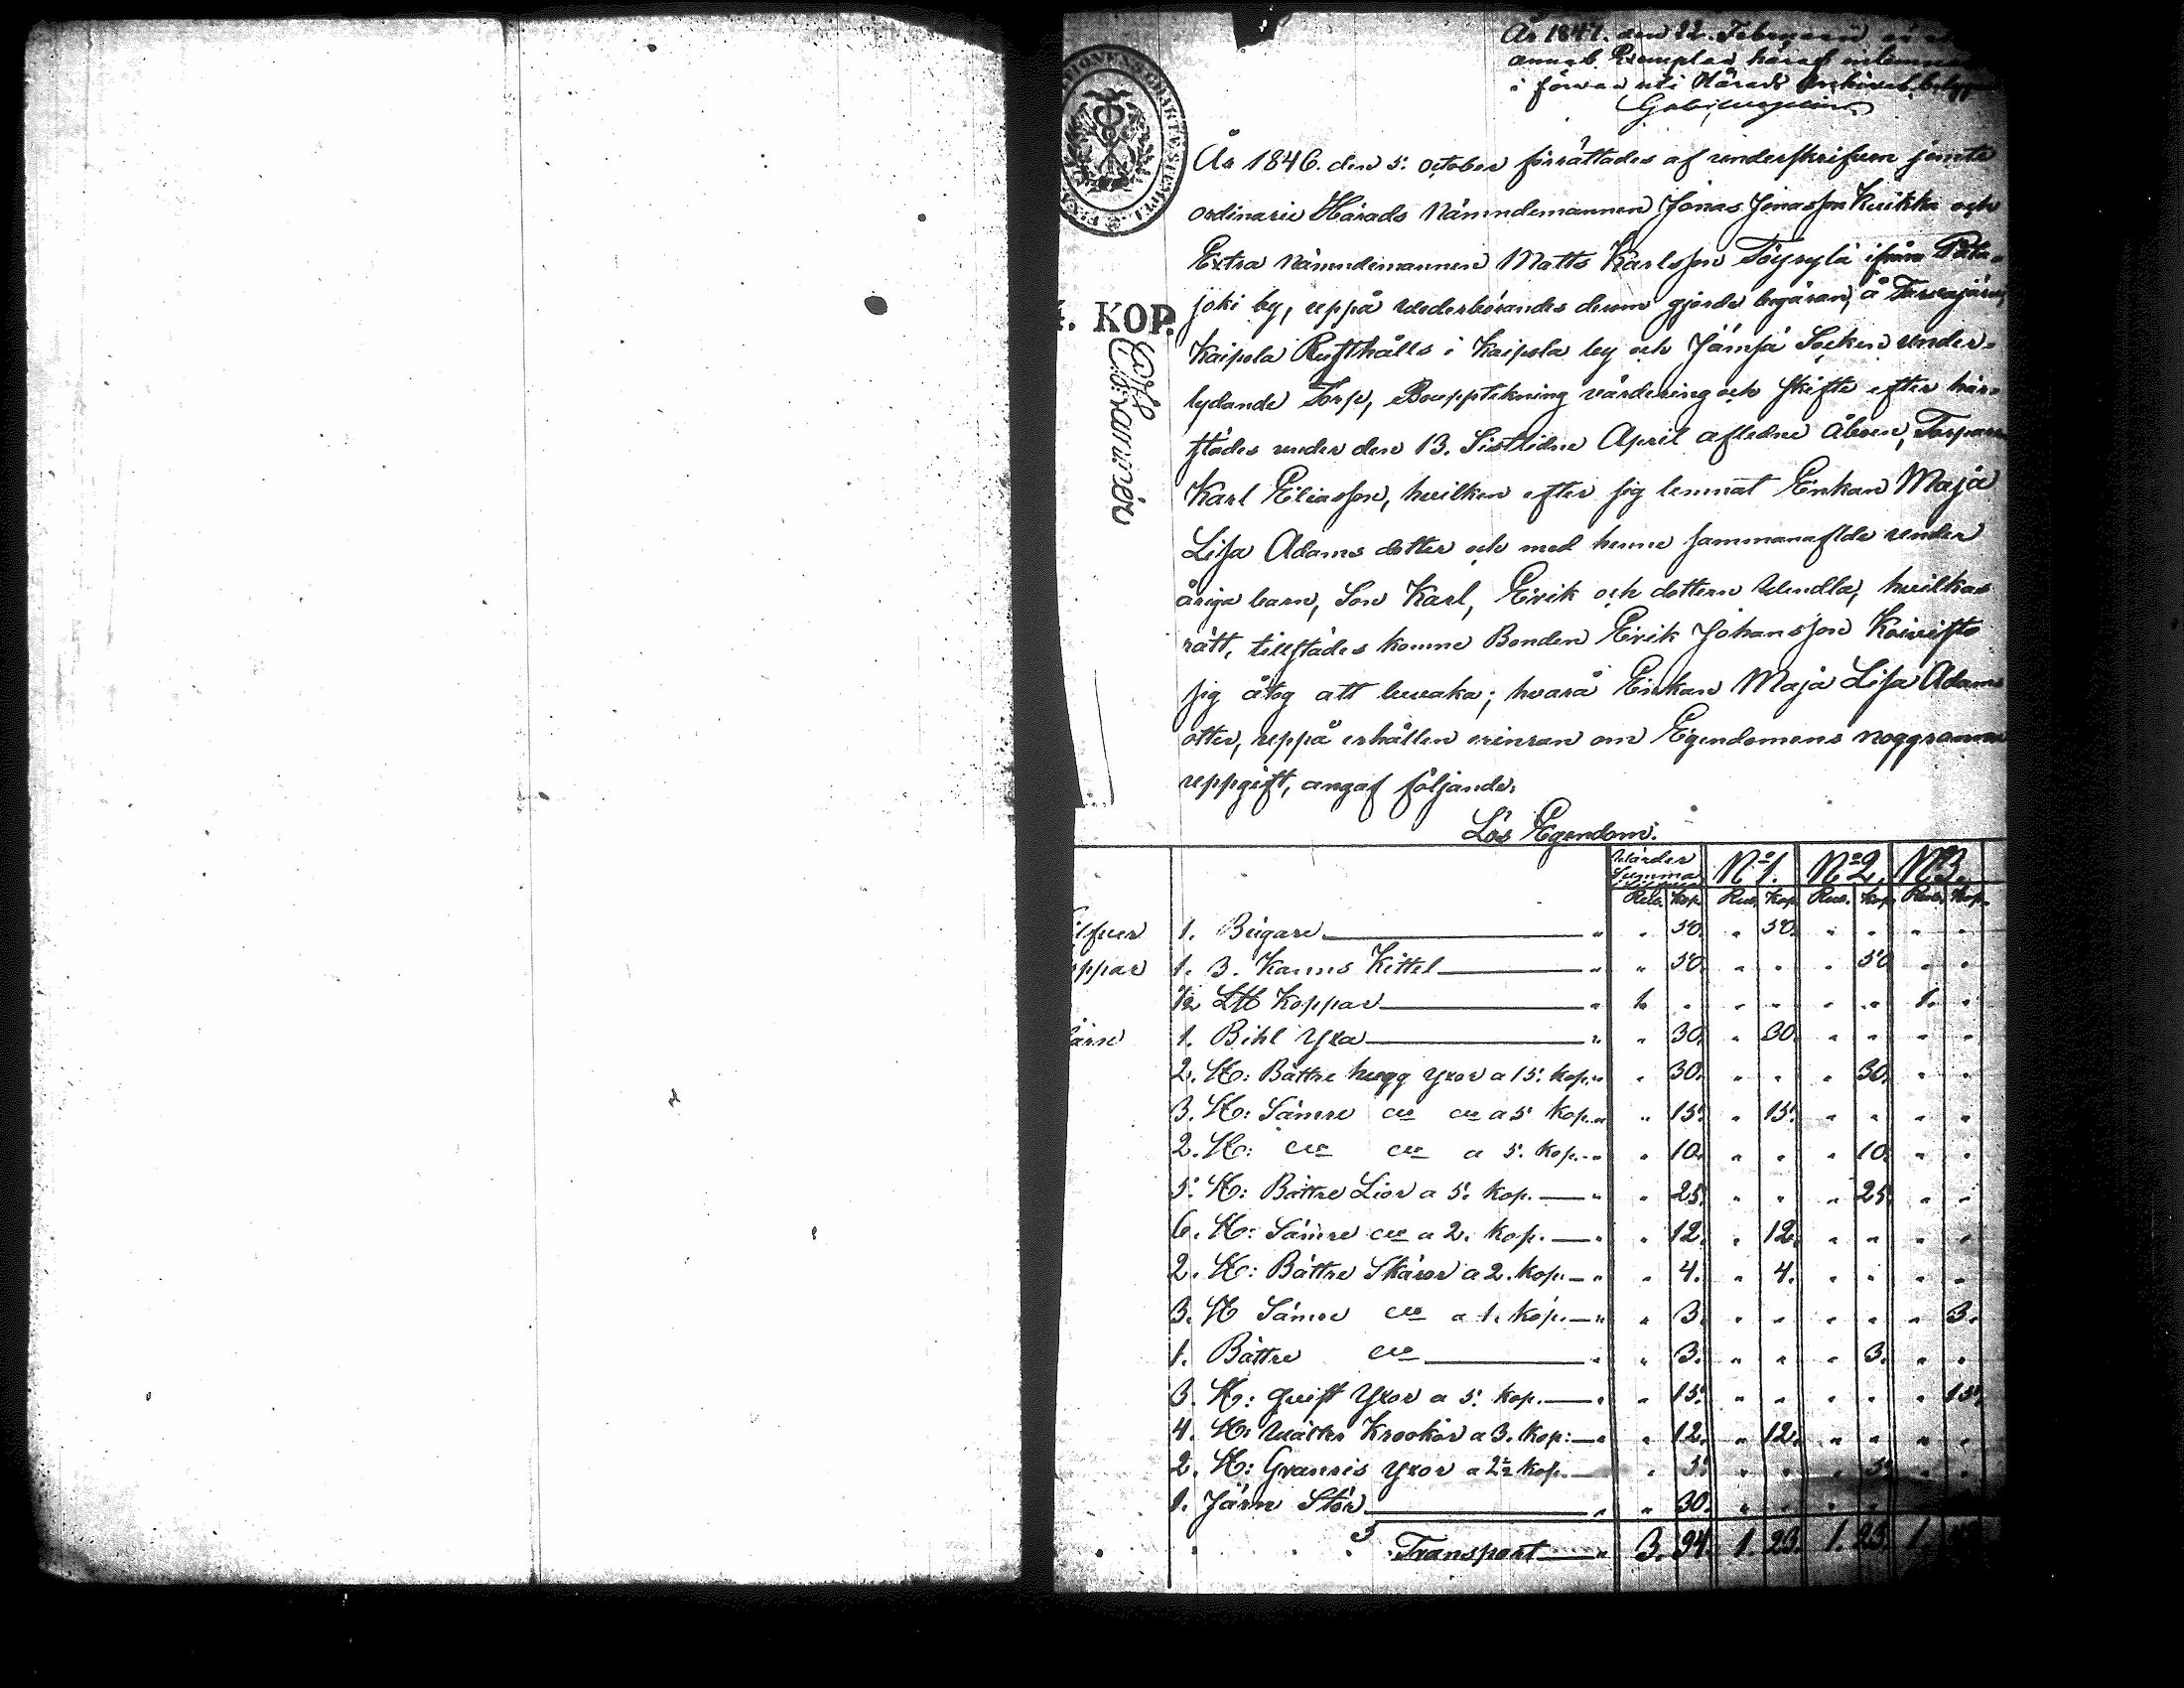 År 1847. den 22. Februarii
annat Exemplar häraf
i förvar uti Härads Arkivet
År 1846. den 5. October förrättades af underskrifven jemte
ordinarie Härads Nämndemannen Jonas Jonasson Kuikka och
Extra Nämndemannen Matts Karlsson Töyrylä ifrån Pata-
joki by, uppå wederbörandes derom gjorde begäran, å
4. KOP.
Kaipola Rusthålls i Kaipola by och Jämsä Socken under-
lydande Torp, Bouppteckning värdering och skifte efter här-
städes under den 13. Sistlidne April aflidne Åboen, Torparen
Karl Eliasson, hvilken efter sig lemnat Enkan Maja
Lisa Adams dotter och med henne sammanaflde under
åriga barn, Son Karl, Erik och dottern Wendla, hvilkas
rätt, tillstädes komne Bonden Erik Johansson Koivisto
sig åtog att bevaka; hvarå Enkan Maja Lisa Adams
otter, uppå erhållen erinran om Egendomens noggranna
uppgift, angaf följande:
Lös Egendom.
Wärder Summa No 1. No 2. No 3.
Rub. Kop. Rub. Kop. Rub. Kop. Rub. Kop.
ilfver 1. Bägare " " 50. " 50. " " " "
oppar 1. 3. Kanns Kittel " " 50. " " " 50 " "
1/2 L℔ Koppar " 1. " " " " " 1. "
ärn 1. Bihl Yxa " " 30. " 30. " " " "
2. St: Bättre hugg yxor a 15. kop. " " 30. " " " 30. " "
3. St: Sämre do do a 5 kop. " " 15. " 15. " " " "
2. St: do do a 5. kop. " " 10. " " " 10. " "
5. St: Bättre Lior a 5. kop. " " 25. " " " 25. " "
6. St: Sämre do a 2. kop. " " 12. " 12. " " " "
2. St: Bättre Skäror a 2. kop. " " 4. " 4. " " " "
3. St Sämre do a 1. kop. " " 3. " " " " " 3.
1. Bättre do " " 3. " " " 3. " "
3. St: Yxor a 5. kop. " " 15. " " " " " 15.
4. St: Krookar a 3. kop: " " 12. " 12. " " " "
2. St: Granris yxor a 2 1/2 kop. " 5. " " " 5. " "
1. Järn Stör " " 30. " " " "
Transport " 3. 94. 1. 23. 1. 23. 1.